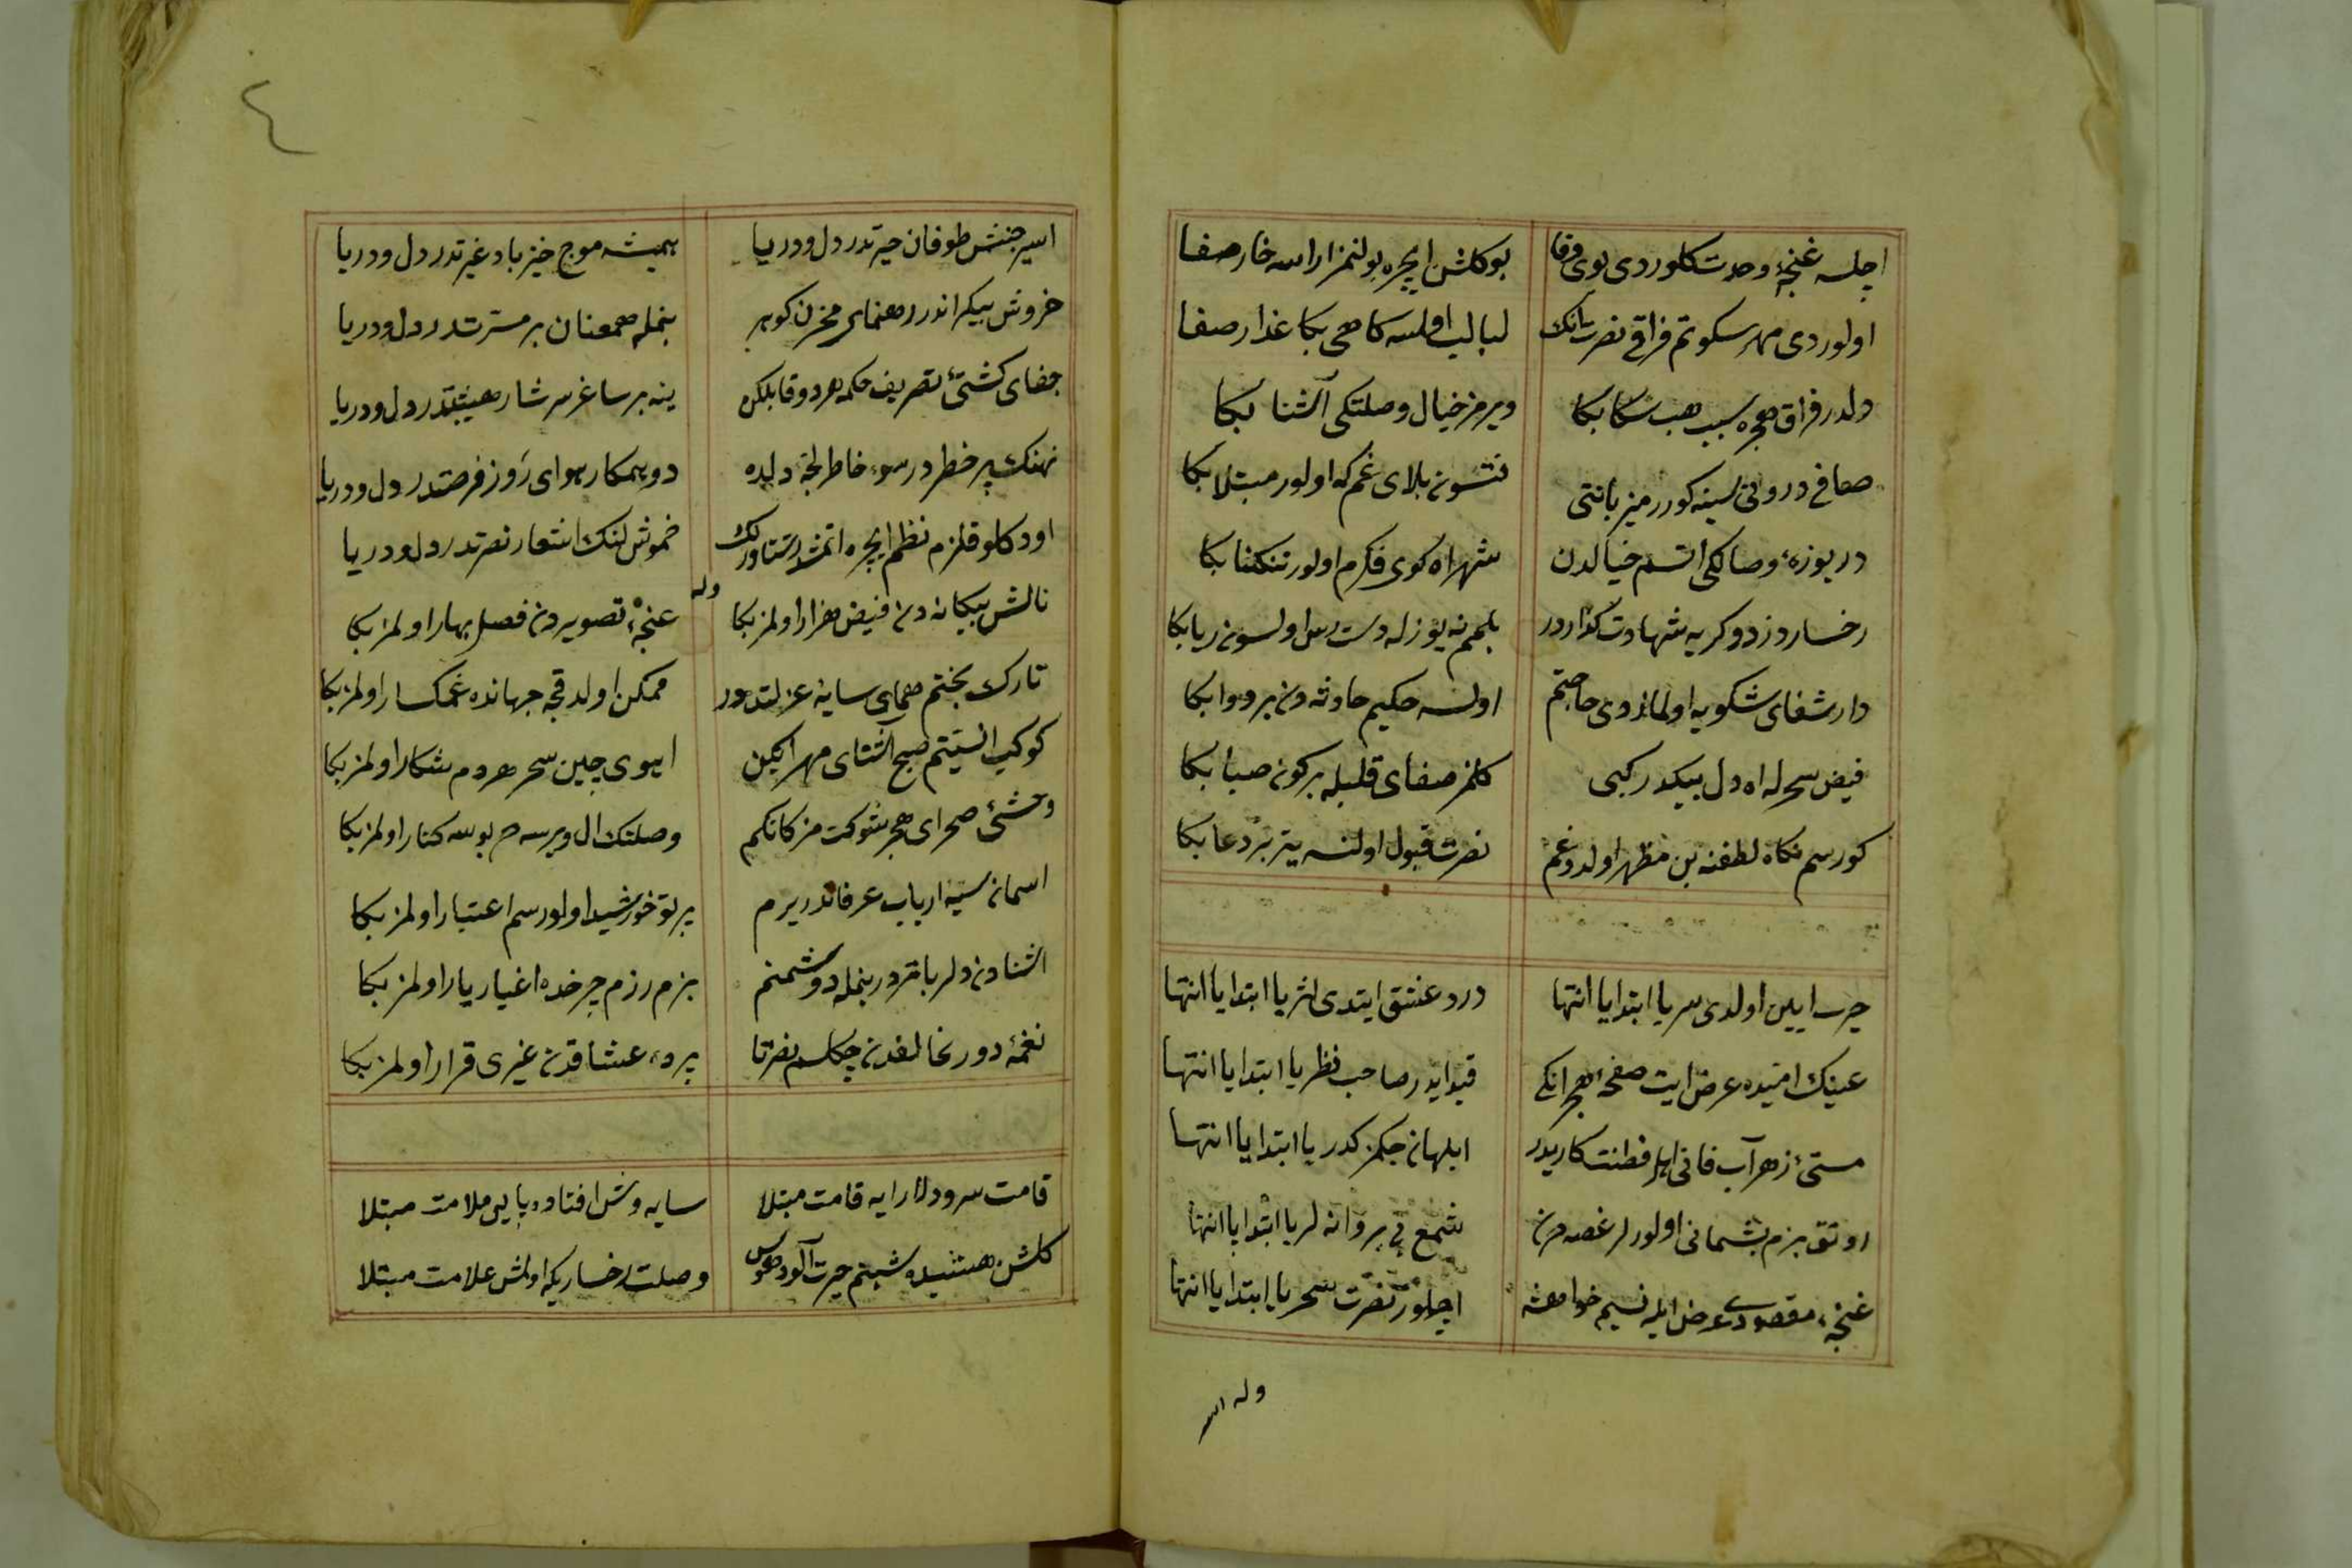 اچلسه غنچهٔ وحدت كلوردی بوی وفا بوكلشن ایچره بولنمز اراسه خار صفا
اولوردی مهر سكوتم فراقی نصرتانك لبالب اولسه كاهی بكا عذار صفا
دلدر فراق هجره سبب هب سكا بكا ویرمز خیال وصلتكی آشنا بكا
صحافی درونی سینه كورر میزبانتی بلای غم كه اولور مبتلا بكا
دریوزهٔ وصالكی اتسم خیالدن شهراه كوی فكرم اولور تنكنا بكا
رخسار دزدو كریه شهادت كذاردر بلمم نه یوزله دسترس اولسون ریا بكا
دارشفای شكویه اولمازدی حاجتم اولسه حكیم حادثه دن بر دوا بكا
فیض سحرله اه دل كبی كلمز صفای قلبله بركون صبا بكا
كورسم نكاه لطفنه بن مظهر اولدوغم نصرت قبول اولنسه یتر بر دعا بكا
ایین اولدی سر یا ابتدا یا انتها درد عشق ایتدی اثر یا ابتدا یا انتها
عینك امیده عرض ایت صفحهٔ هجرانكی قید ایدر صاحب نظر یا ابتدا یا انتها
مستئ زهرآب فانی اهل فطنت كاریدر ابلهان چكمز كدر یا ابتدا یا انتها
بزم پشمانی اولورلر غصه دن شمع پروانه لر یا ابتدا یا انتها
غنچهٔ مقصودی عرض ایله نسیم اچلور نصرت سحر یا ابتدا یا انتها
وله
٤
اسیر جنبش طوفان حیرتدر دل ودریا همیشه موج خیز باد غیرتدر دل ودریا
خروش بیكراندر رهنمای مخزن كوهر بنمله همعنان بر مسرتدر دل ودریا
جفای كشتئ تصریف حكمه هر دو قابلكن ینه بر ساغر سرشار هیبتدر دل ودریا
نهنك پر خطردر سوء خاطر لجهٔ دلده دو همكار هوای روز فرصتدر دل ودریا
قلزم نظم ایچره خموش لنك اشعار نصرتدر دل ودریا
وله
نالش بیكانه دن فیض هزار اولمز بكا غنچهٔ تصویردن فصل بهار اولمز بكا
تارك بختم همای سایهٔ عزلتدور ممكن اولدقجه جهانده غمكسار اولمز بكا
كوكب صبح آشنای مهر ایكن اهوی چین سحر هردم شكار اولمز بكا
وحشئ صحرای هجر شوكت مژكانكم وصلتك ال ویرسه هم بوسه كنار اولمز بكا
اسمان سینهٔ ارباب عرفاندر یرم پرتو خورشید اولورسم اعتبار اولمز بكا
اشنادن دلربا تردر بنمله دوشمنم بزم رزم چرخده اغیار یار اولمز بكا
نغمهٔ دور مخالفدن چكلسم نصرتا پردهٔ عشاقدن غیری قرار اولمز بكا
قامت سرو دلارایه قامت مبتلا سایه وش افتاده پایی ملامت مبتلا
كلشن شبنم حیرت آلود هوس وصلت رخساریكه اولمش علامت مبتلا